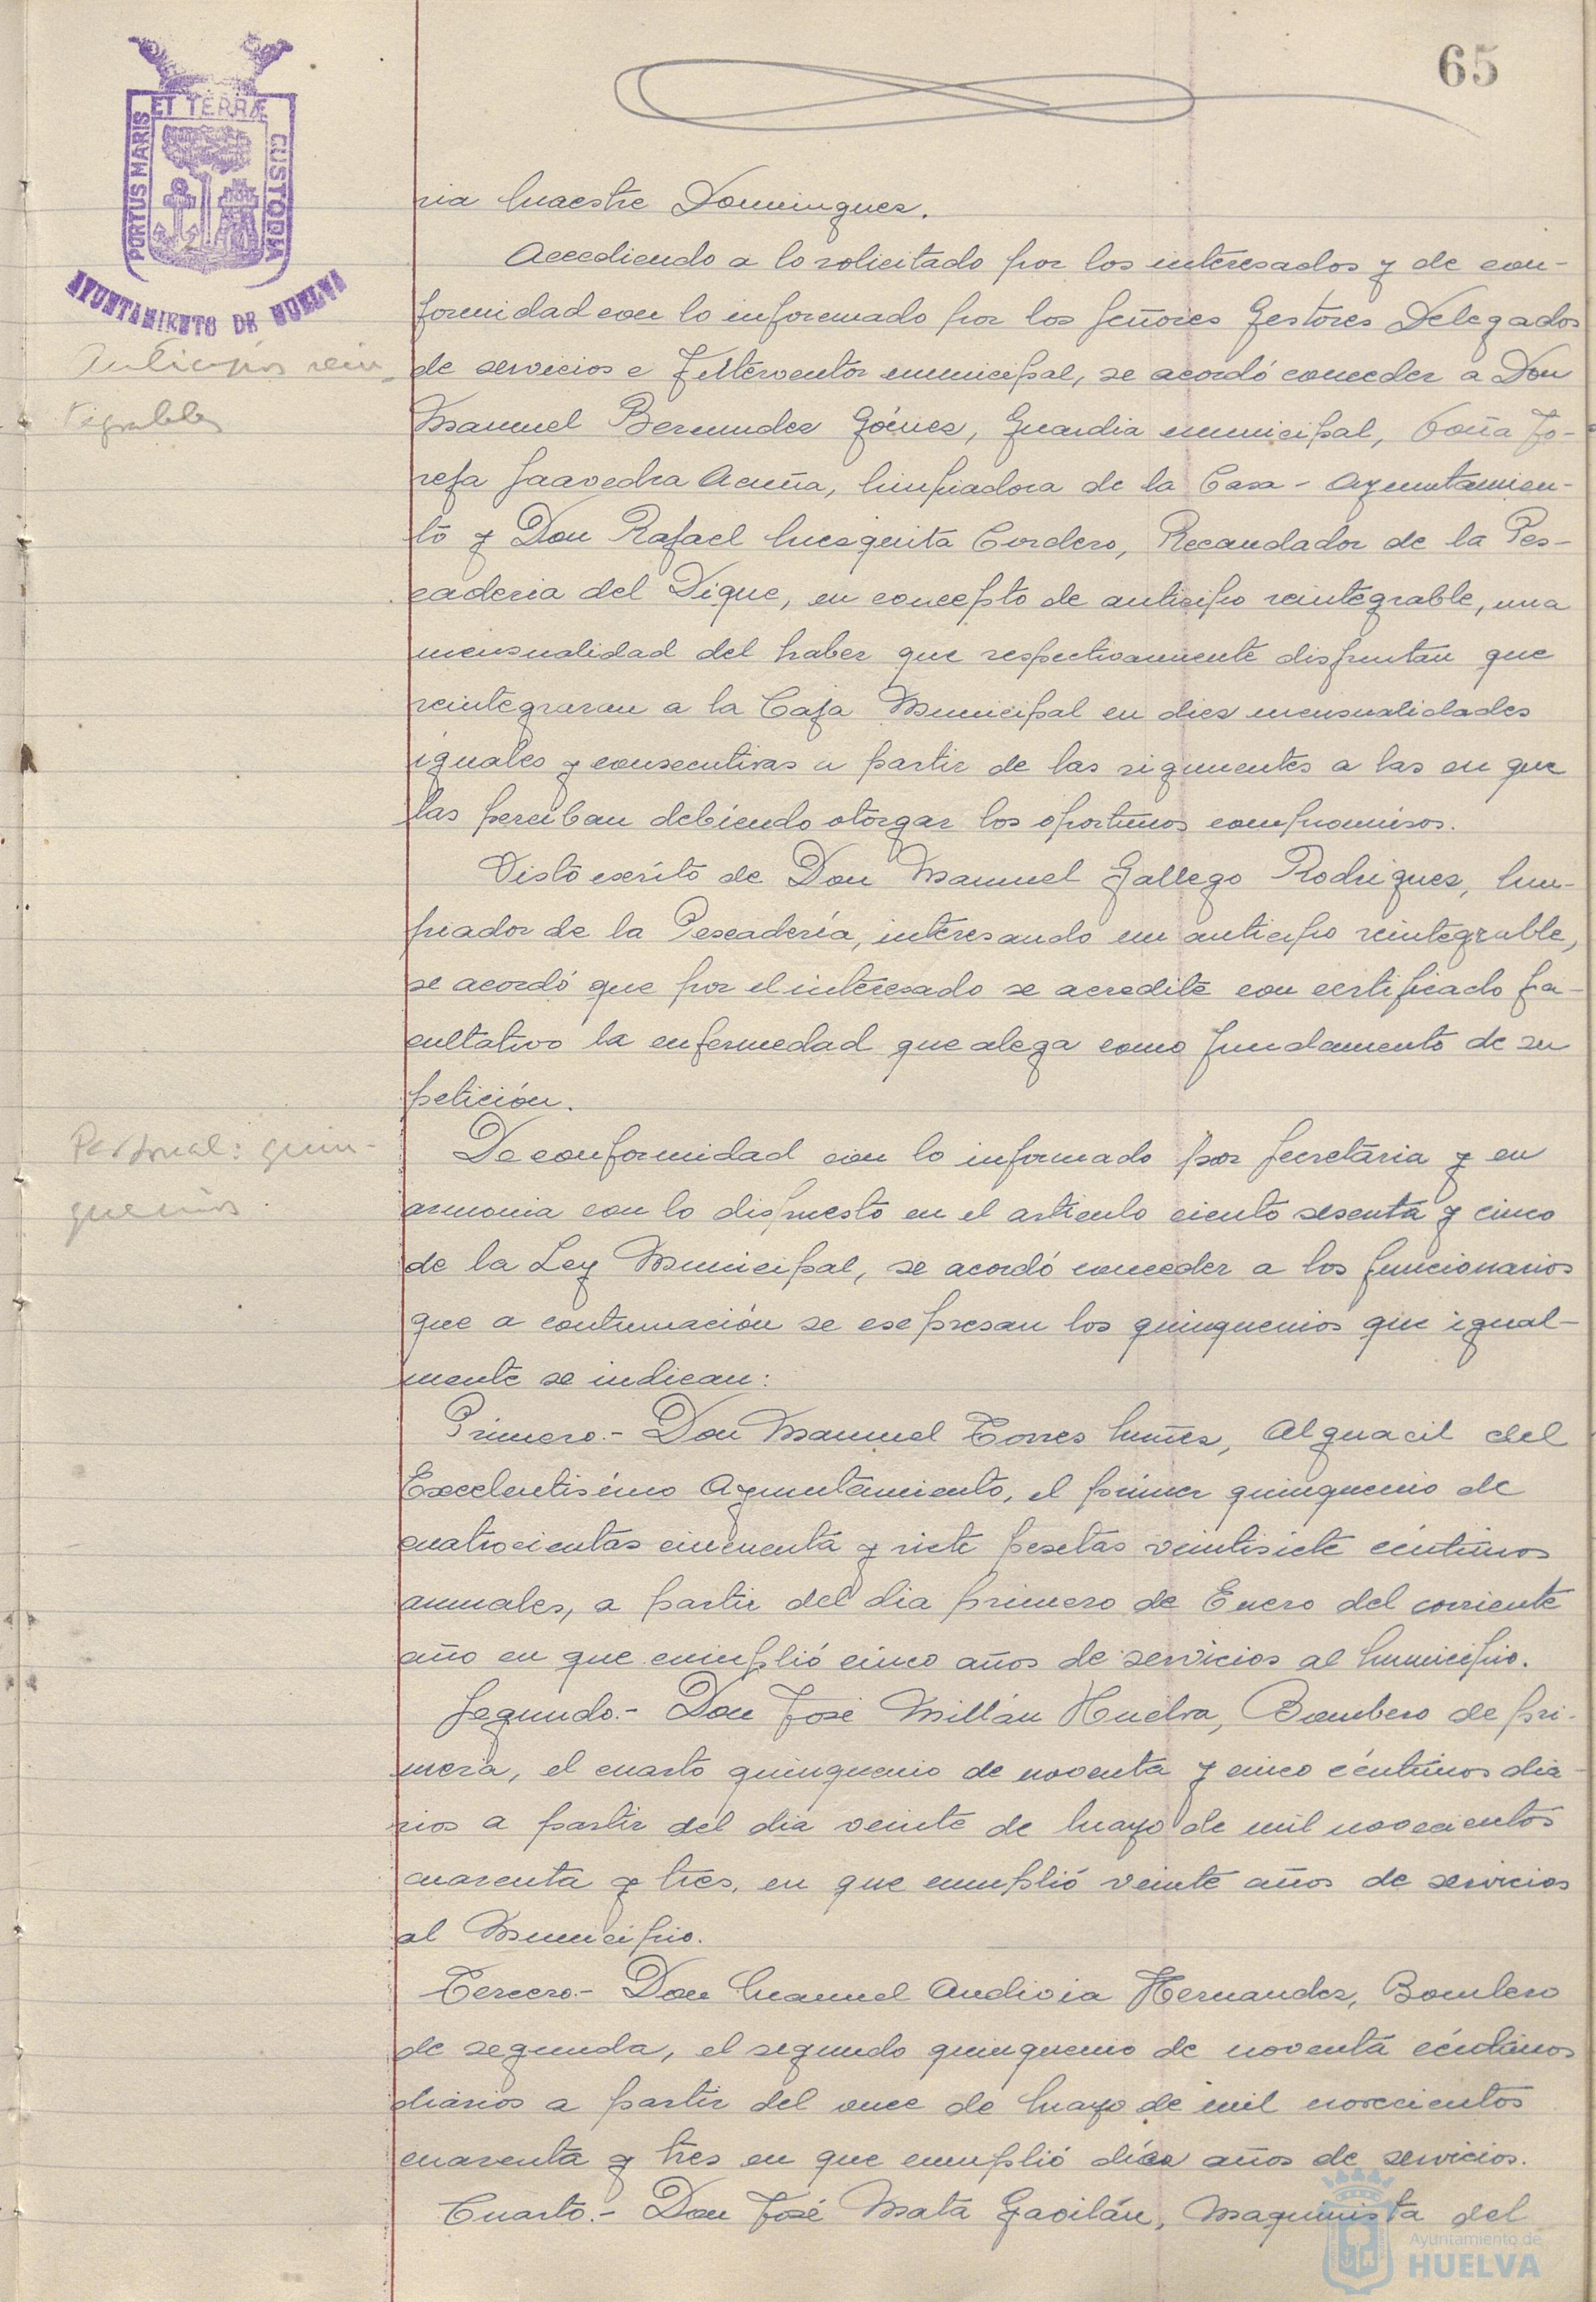 65
PORTUS MARIS ET TERRÆ CUSTODIA
AYUNTAMIENTO DE HUELVA
ria Maestre Dominguez.
Accediendo a lo solicitado por los interesados y de con-
formidad con lo informado por los Señores Gestores Delegados
Anticipos rein-
de servicios e Interventor municipal, se acordó conceder a Don
tegrables
Manuel Bermudez Gómez, Guardia municipal, Doña Jo-
sefa Saavedra Acuña, limpiadora de la Casa-Ayuntamien-
to y Don Rafael Mezquita Cordero, Recaudador de la Pes-
caderia del Dique, en concepto de anticipo reintegrable, una
mensualidad del haber que respectivamente disfrutan que
reintegraran a la Caja Municipal en diez mensualidades
iguales y consecutivas a partir de las siguientes a las en que
las perciban debiendo otorgar los oportunos compromisos.
Visto escrito de Don Manuel Gallego Rodriguez, lim-
piador de la Pescadería, interesando un anticipo reintegrable,
se acordó que por el interesado se acredite con certificado fa-
cultativo la enfermedad que alega como fundamento de su
petición.
Personal: quin-
De conformidad con lo informado por Secretaria y en
quenios.
armonia con lo dispuesto en el articulo ciento sesenta y cinco
de la Ley Municipal, se acordó conceder a los funcionarios
que a continuación se expresan los quinquenios que igual-
mente se indican:
Primero.- Don Manuel Torres Muñiz, Alguacil del
Excelentisimo Ayuntamiento, el primer quinquenio de
cuatrocientas cincuenta y siete pesetas veintisiete céntimos
anuales, a partir del dia primero de Enero del corriente
año en que cumplió cinco años de servicios al Municipio.
Segundo.- Don José Millán Huelva, Bombero de pri-
mera, el cuarto quinquenio de noventa y cinco céntimos dia-
rios a partir del dia veinte de Mayo de mil novecientos
cuarenta y tres, en que cumplió veinte años de servicios
al Municipio.
Tercero.- Don Manuel Andivia Hernandez, Bombero
de segunda, el segundo quinquenio de noventa céntimos
diarios a partir del once de Mayo de mil novecientos
cuarenta y tres en que cumplió diez años de servicios.
Cuarto.- Don José Mata Gavilán, Maquinista del
Ayuntamiento de
HUELVA